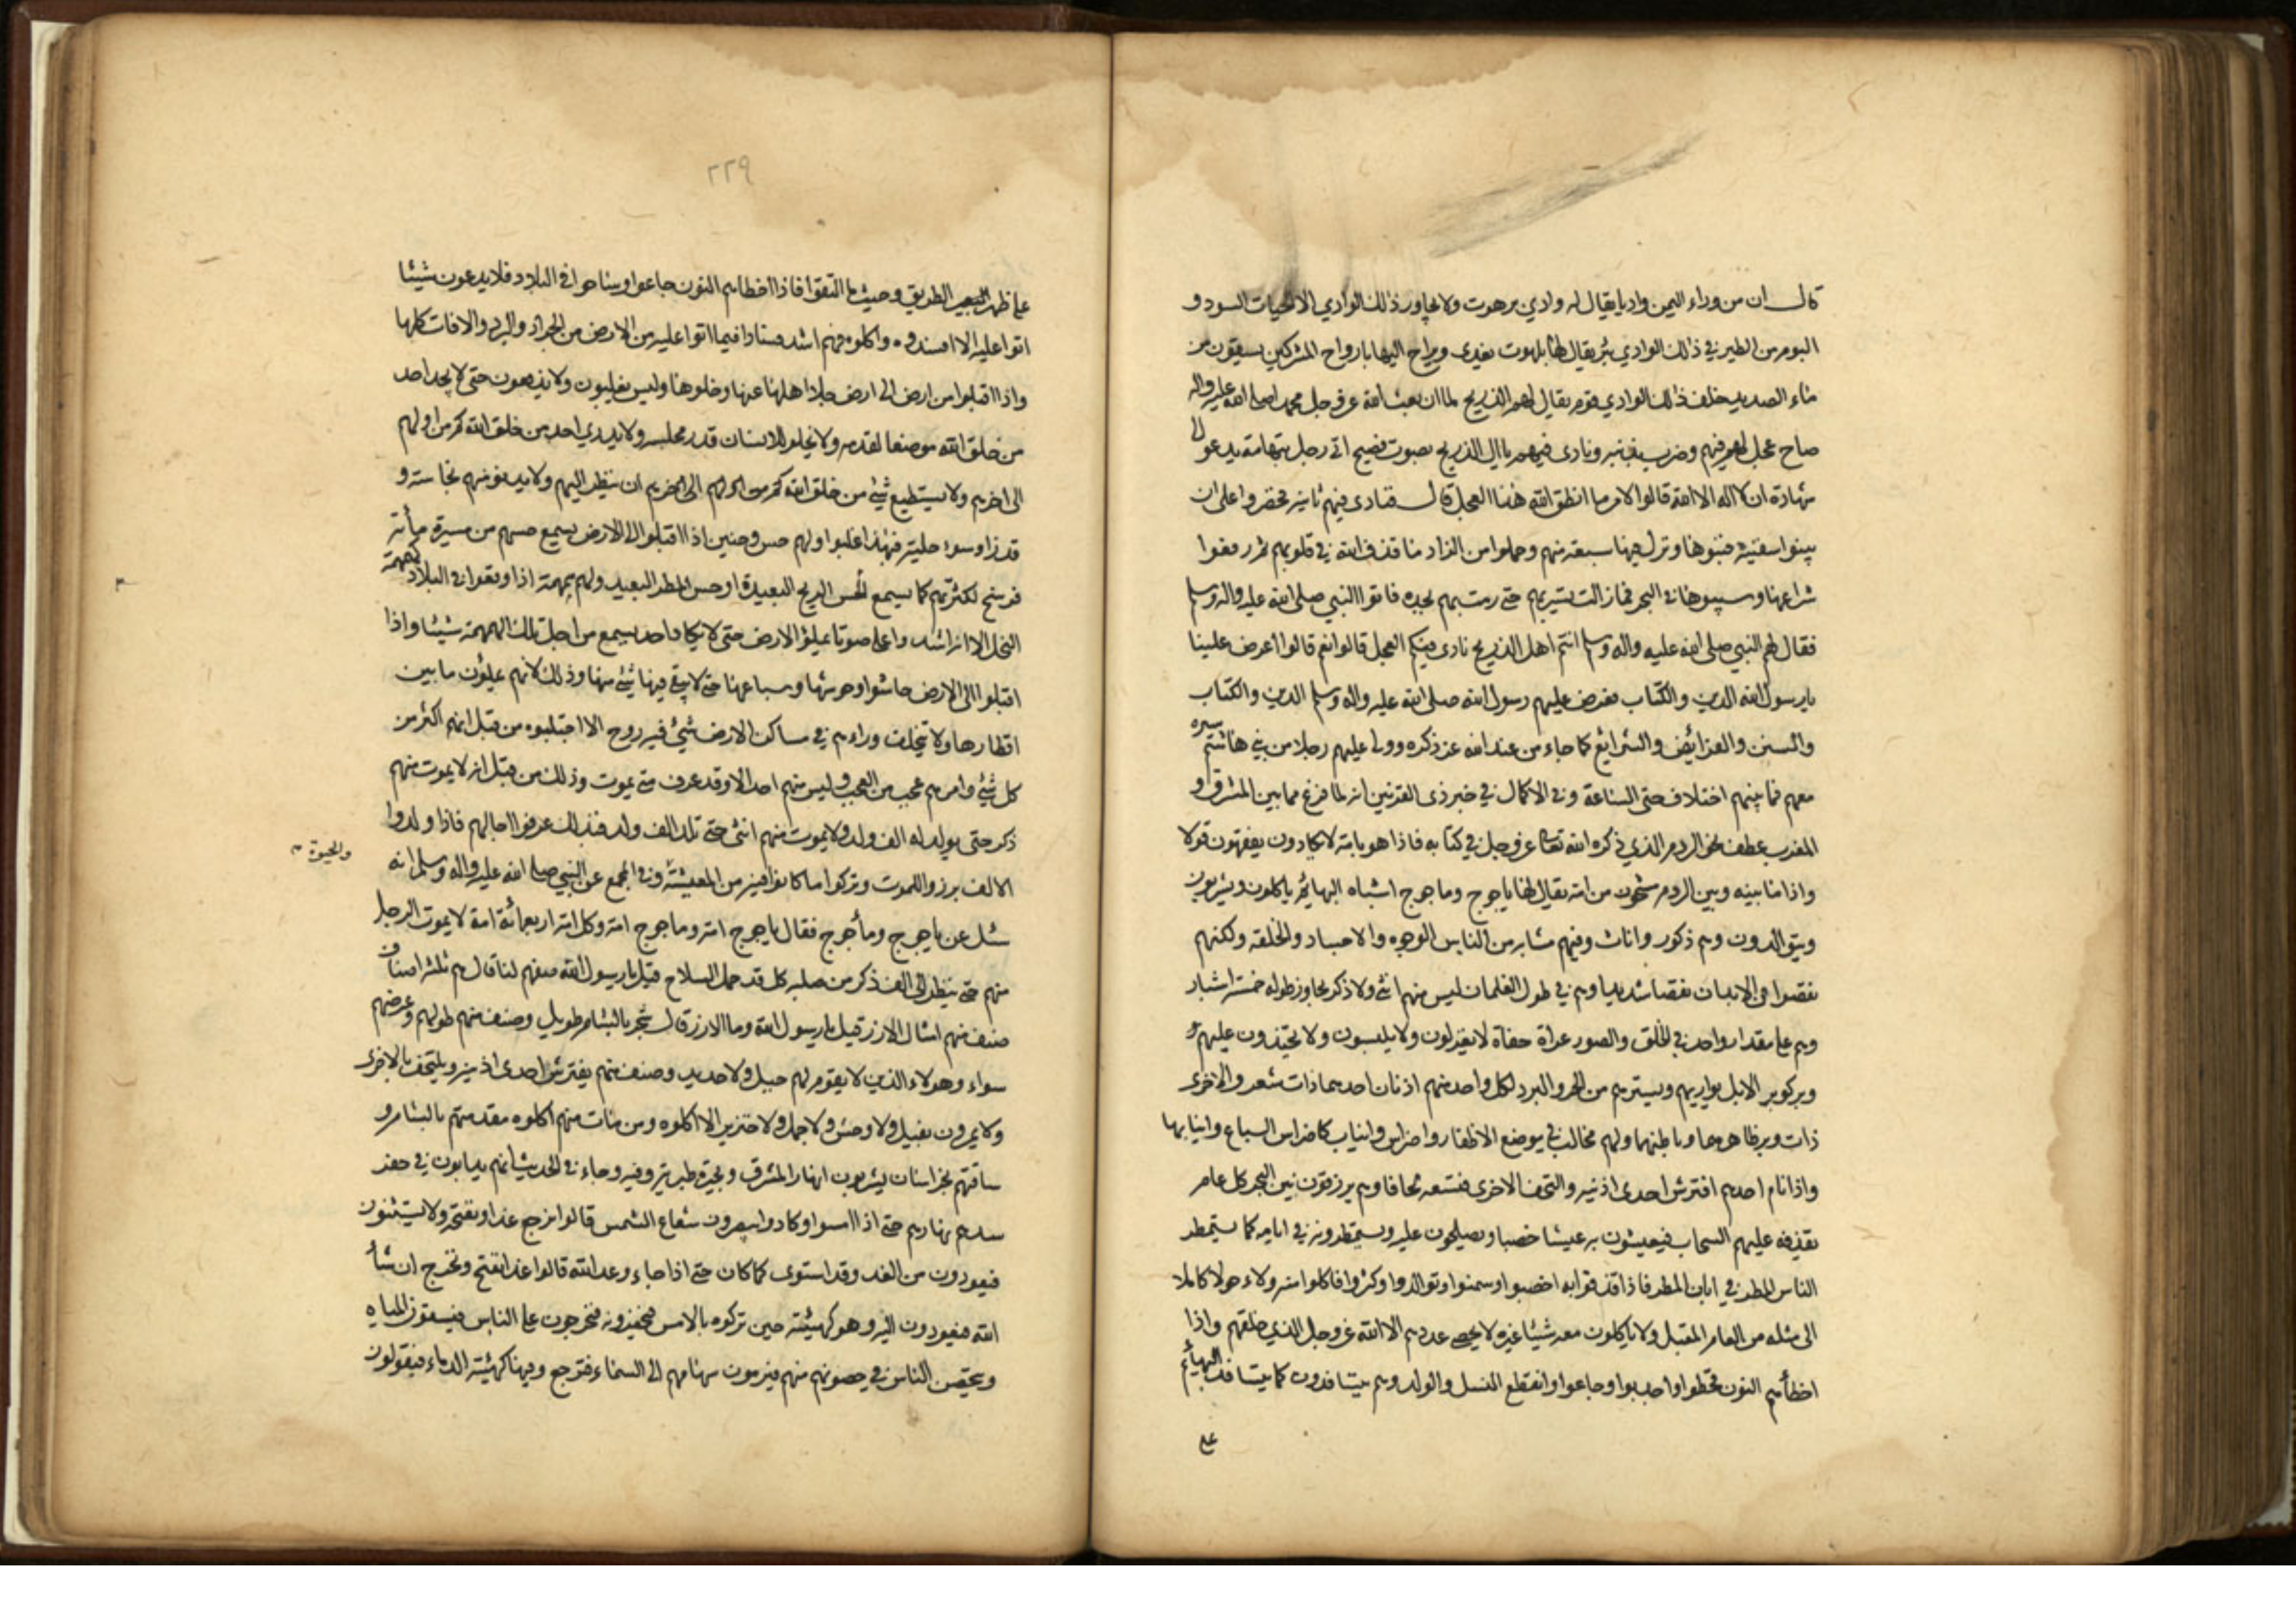 قال ان من وراء اليمن واديا يقال له وادي برهوت ولا يجاور ذلك الوادي الا الحيات السود و
البوم من الطير في ذلك الوادي بئر يقال لها بلهوت يغدى ويراح اليها بارواح المشركين يسقون من
ماء الصديد خلف ذلك الوادي قوم يقال لهم الذريح لما ان بعث الله عز وجل محمدا صلى الله عليه واله
صاح عجل لهم فيهم وضرب بذنبه ونادى فيهم يا ال الذريح بصوت فصيح اتى رجل بتهامة يدعو الى
شهادة ان لا اله الا الله قالوا لامر ما انطق الله هذا العجل قال فنادى فيهم ثانية فعزموا على ان
يبنوا سفينة فبنوها ونزل فيها سبعة منهم وحملوا من الزاد ما قذف الله في قلوبهم ثم رفعوا
شراعها وسيبوها في البحر فما زالت تسير بهم حتى رمت بهم بجدة فاتوا النبي صلى الله عليه واله وسلم
فقال لهم النبي صلى الله عليه واله وسلم انتم اهل الذريح نادى فيكم العجل قالوا نعم قالوا اعرض علينا
يا رسول الله الدين والكتاب فعرض عليهم رسول الله صلى الله عليه واله وسلم الدين والكتاب
والسنن والفرائض والشرائع كما جاء من عند الله عز ذكره وولى عليهم رجلا من بني هاشم سيره
معهم فما بينهم اختلاف حتى الساعة وفي الاكمال في خبر ذي القرنين انه لما فرغ مما بين المشرق و
المغرب عطف نحو الردم الذي ذكره الله تعالى عز وجل في كتابه فاذا هو بامة لا يكادون يفقهون قولا
واذا ما بينه وبين الردم مشحون من امة يقال لها ياجوج وماجوج اشباه البهائم ياكلون ويشربون
ويتوالدون وهم ذكور واناث وفيهم مشابه من الناس الوجوه والاجساد والخلقة ولكنهم
نقصوا في الابدان نقصا شديدا وهم في طول الغلمان ليس منهم انثى ولا ذكر يجاوز طوله خمسة اشبار
وهم على مقدار واحد في الخلق والصور عراة حفاة لا يغزلون ولا يلبسون ولا يحتذون عليهم
وبر كوبر الابل يواريهم ويسترهم من الحر والبرد لكل واحد منهم اذنان احدهما ذات شعر والاخرى
ذات وبر ظاهرهما وباطنهما ولهم مخالب في موضع الاظفار واضراس وانياب كاضراس السباع وانيابها
واذا نام احدهم افترش احدى اذنيه والتحف الاخرى فتسعه لحافا وهم يرزقون تنين البحر كل عام
يقذفه عليهم السحاب فيعيشون به عيشا خصبا ويصلحون عليه ويستمطرونه في ايامه كما يستمطر
الناس المطر في ابان المطر فاذا قذفوا به اخصبوا وسمنوا وتوالدوا وكثروا فاكلوا منه ولاء حولا كاملا
الى مثله من العام المقبل ولا ياكلون معه شيئا غيره لا يحصي عددهم الا الله عز وجل الذي خلقهم واذا
اخطأهم التنين قحطوا واجدبوا وجاعوا وانقطع النسل والولد وهم يتسافدون كما يتسافد البهائم
على
٢٢٩
على ظهر الطريق وحيث ما التقوا فاذا اخطاهم التنين جاعوا وساحوا في البلاد فلا يدعون شيئا
اتوا عليه الا افسدوه واكلوه فهم اشد فسادا فيما اتوا عليه من الارض من الجراد والبرد والافات كلها
واذا اقبلوا من ارض الى ارض جلا اهلها عنها وخلوها وليس يغلبون ولا يدفعون حتى لا يجد احد
من خلق الله موضعا لقدمه ولا يخلو للانسان قدر مجلسه ولا يدري احد من خلق الله كم من اولهم
الى اخرهم ولا يستطيع شئ من خلق الله ان ينظر اليهم ولا يدنو منهم نجاسة و
قذرا وسوء حلية فبهذا غلبوا ولهم حس وحنين اذا اقبلوا الى الارض يسمع حسهم من مسيرة مأة
فرسخ لكثرتهم كما يسمع حس الريح البعيدة او حس المطر البعيد ولهم همهمة اذا وقعوا في البلاد كهمهمة
النحل الا انه اشد واعلى صوتا يملؤ الارض حتى لا يكاد احد يسمع من اجل تلك الهمهمة شيئا واذا
اقبلوا الى الارض حاشوا وحوشها وسباعها حتى لا يبقى فيها شئ منها وذلك لانهم يملؤن ما بين
اقطارها ولا يتخلف وراءهم في ساكن الارض شئ فيه روح الا اجتلبوه من قبل انهم اكثر من
كل شئ وامرهم عجب من العجب وليس منهم احد الا وقد عرف متى يموت وذلك من قبل انه لا يموت منهم
ذكر حتى يولد له الف ولد ولا يموت منهم انثى حتى تلد الف ولد فبذلك عرفوا اجالهم فاذا ولدوا
والحيوة
الالف برزوا للموت وتركوا ما كانوا فيه من المعيشة وفي المجمع عن النبي صلى الله عليه واله وسلم انه
سئل عن ياجوج ومأجوج فقال ياجوج امة وماجوج امة وكل امة اربعمائة امة لا يموت الرجل
منهم حتى ينظر الى الف ذكر من صلبه كل قد حمل السلاح قيل يا رسول الله صفهم لنا قال هم ثلثة اصناف
صنف منهم امثال الارز قيل يا رسول الله وما الارز قال شجر بالشام طويل وصنف منهم طولهم وعرضهم
سواء وهولاء الذين لا يقوم لهم جبل ولا حديد وصنف منهم يفترش احدى اذنيه ويلتحف بالاخرى
ولا يمرون بفيل ولا وحش ولا جمل ولا خنزير الا اكلوه ومن مات منهم اكلوه مقدمتهم بالشام و
ساقتهم بخراسان يشربون انهار المشرق وبحيرة طبرية وفيه وجاء في الحديث انهم يدابون في حفر
سدهم نهارهم حتى اذا امسوا وكادوا يبصرون شعاع الشمس قالوا نرجع غدا ونفتحه ولا يستثنون
فيعودون من الغد وقد استوى كما كان حتى اذا جاء وعد الله قالوا غدا نفتح ونخرج ان شأ
الله فيعودون اليه وهو كهيئته حين تركوه بالامس فيحفرونه فيخرجون على الناس فيشفون المياه
ويتحصن الناس في حصونهم منهم فيرمون سهامهم الى السماء فترجع وفيها كهيئة الدماء فيقولون